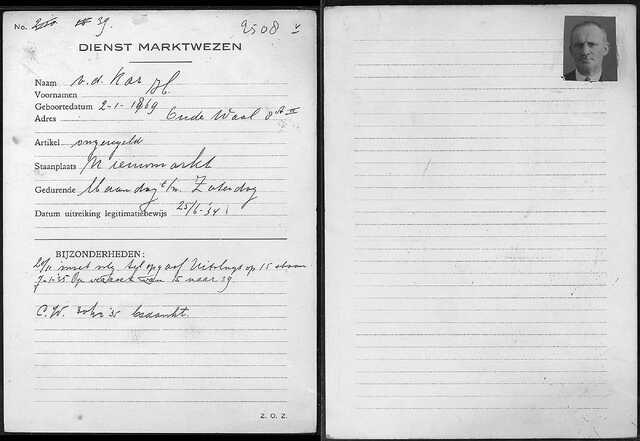 No. 39.
2508 v
DIENST MARKTWEZEN
Naam v.d. Kar
Voornamen H.
Geboortedatum 2-1-1869
Adres Oude Waal 8 A II
Artikel ongeregeld
Staanplaats Nieuwmarkt
Gedurende Maandag t/m. Zaterdag
Datum uitreiking legitimatiebewijs 25/6-'34
BIJZONDERHEDEN:
moet vlg. op 15 staan
Op verzoek van 15 naar 39
C.W. '35 bedankt.
Z. O. Z.